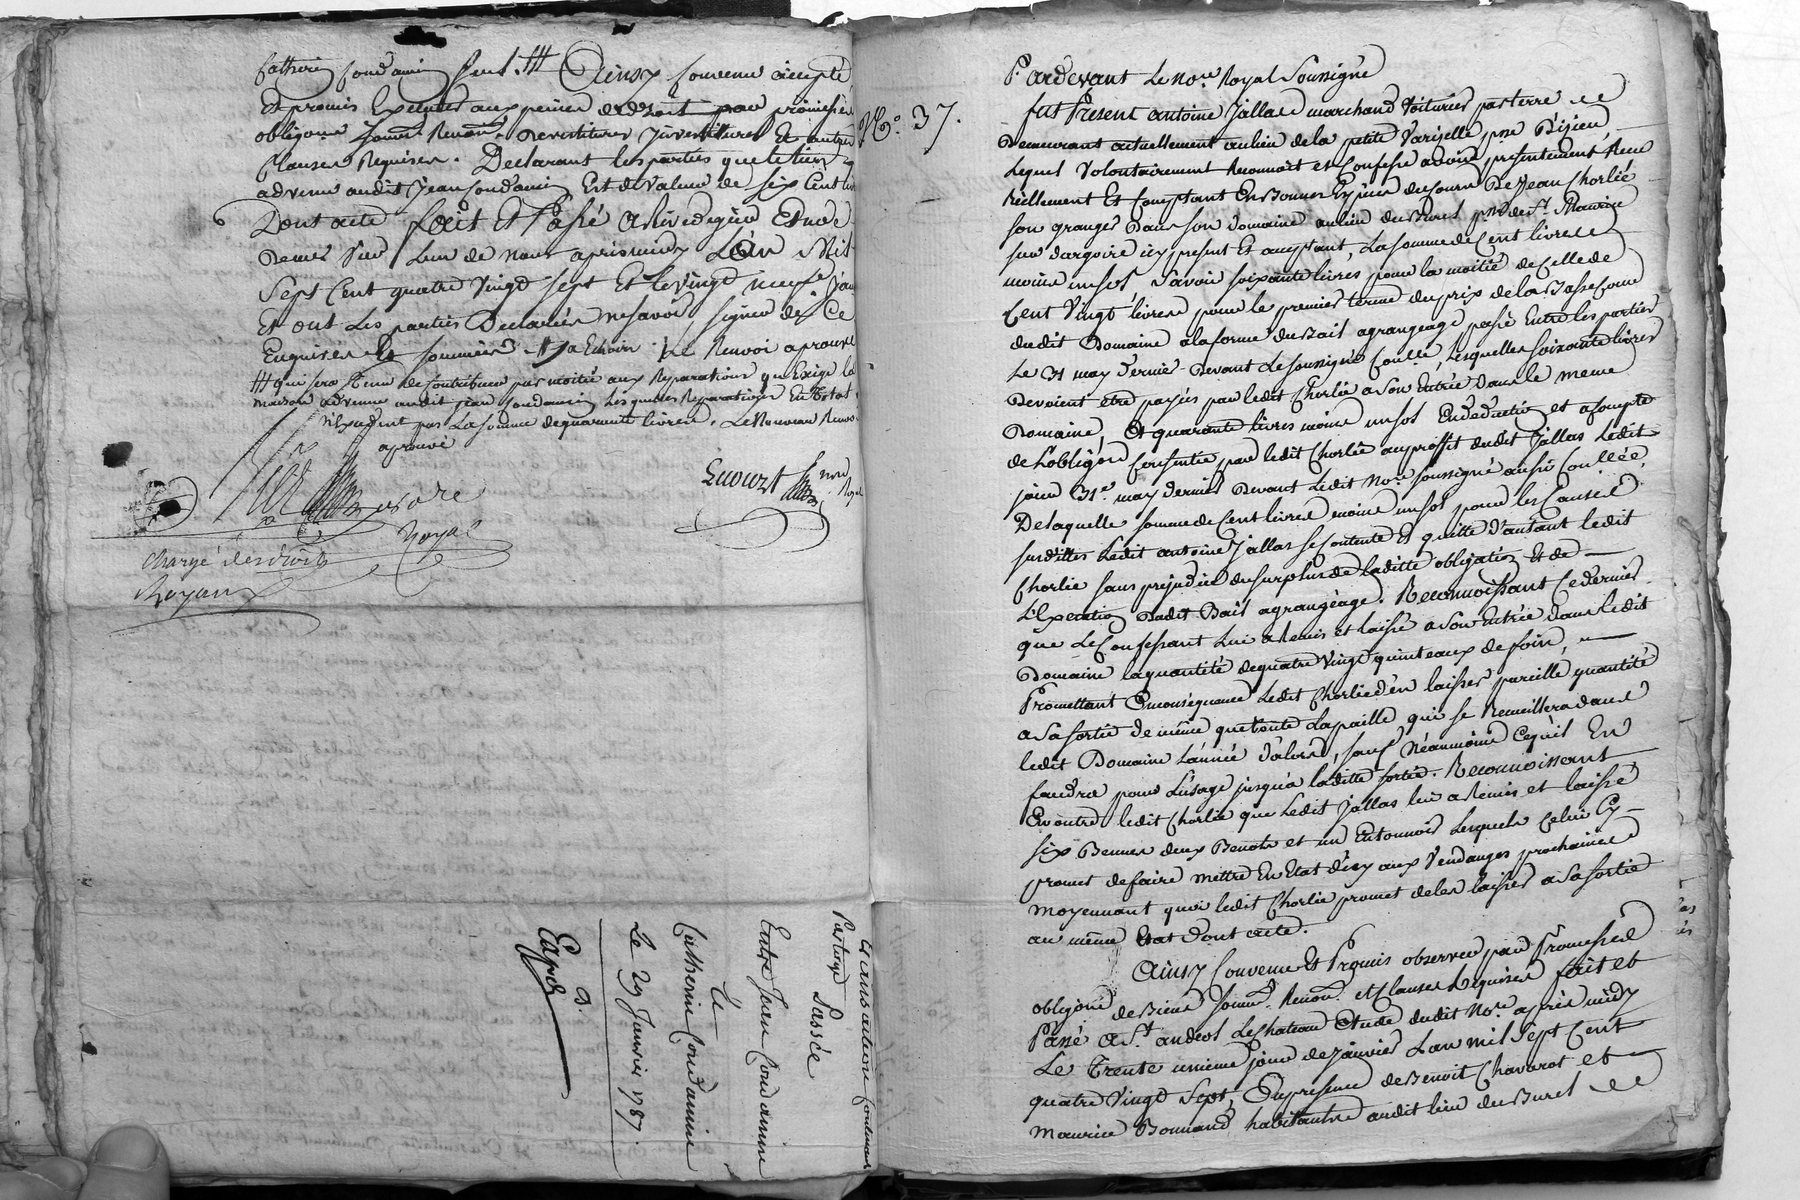 Catherine Condamin seul. Ainsy convenu accepté
Et promis Executer aux peines de droit par promesses
obligons soum.ons Renon.ons Devestitures Investitures Et autres
Clauses Requises. Declarant les parties que le bien
advenu audit Jean Condamin Est de valeur de six Cent
Dont acte fait et Passé a Rivedegier Etude
Demeé Vier l'un de nous apres midy L'an Mil
Sept Cent quatre Vingt sept Et le vingt neuf Janv
Et ont les parties Declarées ne savoir signer de ce
Enquises Et sommées. Le Renvoi aprouvé
qui sera Tenu de Contribuer par moitié aux Reparations qu'Exige la
maison advenue audit Jean Condamin Lesquelles Reparations En total
n'Excedent pas La somme de quarante livres. Le Nouveau Renvoi
aprouvé
Royal
chargé des droits
Royaux
Transaction Contenant
Partage
Passée
Entre Jean Condamine
Et
Catherine Condamine
Le 29 Janvier 1787.
No. 37.
Pardevant Le No.re Royal Soussigné
fut Present antoine Jallas marchand Voiturier par terre
Demeurant actuellement au lieu de la petite Variselle p.sse Bisieu
Lequel Volontairement Reconnoit et Confesse avoir presentement Receu
Réellement Et Comptant En Bonnes Espèces du Cours De Jean Chorlié
son granger Dans son Domaine au lieu du Buret p.sse de St. Maurice
sur dargoire icy present Et acceptant, La somme de Cent livres
moins un sol, Savoir soixante livres pour la moitié de Celle de
Cent Vingt livres pour le premier terme du prix de la Basse Cour
dudit Domaine a la forme du Bail a grangeage passé Entre les parties
Le 31 may dernier Devant Le soussigné Coullé, Lesquelles soixante livres
Devoient etre payées par ledit Chorlié a son Entrée Dans le meme
Domaine, Et quarante livres moins un sol En deduction et a Compte
de L'obligon Consentie par ledit Chorlié au proffit dudit Jallas Ledit
jour 31e may dernier Devant Ledit No.re soussigné aussi Coullée,
De laquelle somme de Cent livres moins un sol pour les Causes
susdittes Ledit antoine Jallas se Contente Et quitte d'autant ledit
Chorlié sans prejudice du surplus de laditte obligation Et de
L'Execution Dudit Bail a grangeage. Reconnoissant Ce dernier
que Le Confessant Lui a Remis et laissé a son Entrée dans ledit
Domaine la quantité de quatre Vingt quinteaux de foin,
Promettant En consequence Ledit Chorlié d'en laisser pareille quantité
a sa sortie de même que toute La paille qui se Recueillera dans
ledit Domaine L'année d'alors, sauf Néanmoins Ce qu'il En
faudra pour L'usage jusqu'a laditte sortie. Reconnoissant
En outre ledit Chorlié que Ledit Jallas lui a Remis et laissé
six Bennes deux Benots et un Entonnoir Lesquels Celui Cy
promet de faire mettre En Etat d'icy aux Vendanges prochaines
moyennant quoi ledit Chorlié promet de les laisser a sa sortie
au même Etat dont acte.
Ainsy Convenu Et Promis observer par Promesses
obligons de Biens soum.ons Renon.ons et Clauses Requises fait et
Passé a St. andeol Le Chateau Etude dudit No.re après midy
Le Trente unieme jour de janvier L'an mil sept Cent
quatre Vingt Sept, En presence de Benoit Chavarot et
Maurice Bonnand habitants audit lieu du Buret